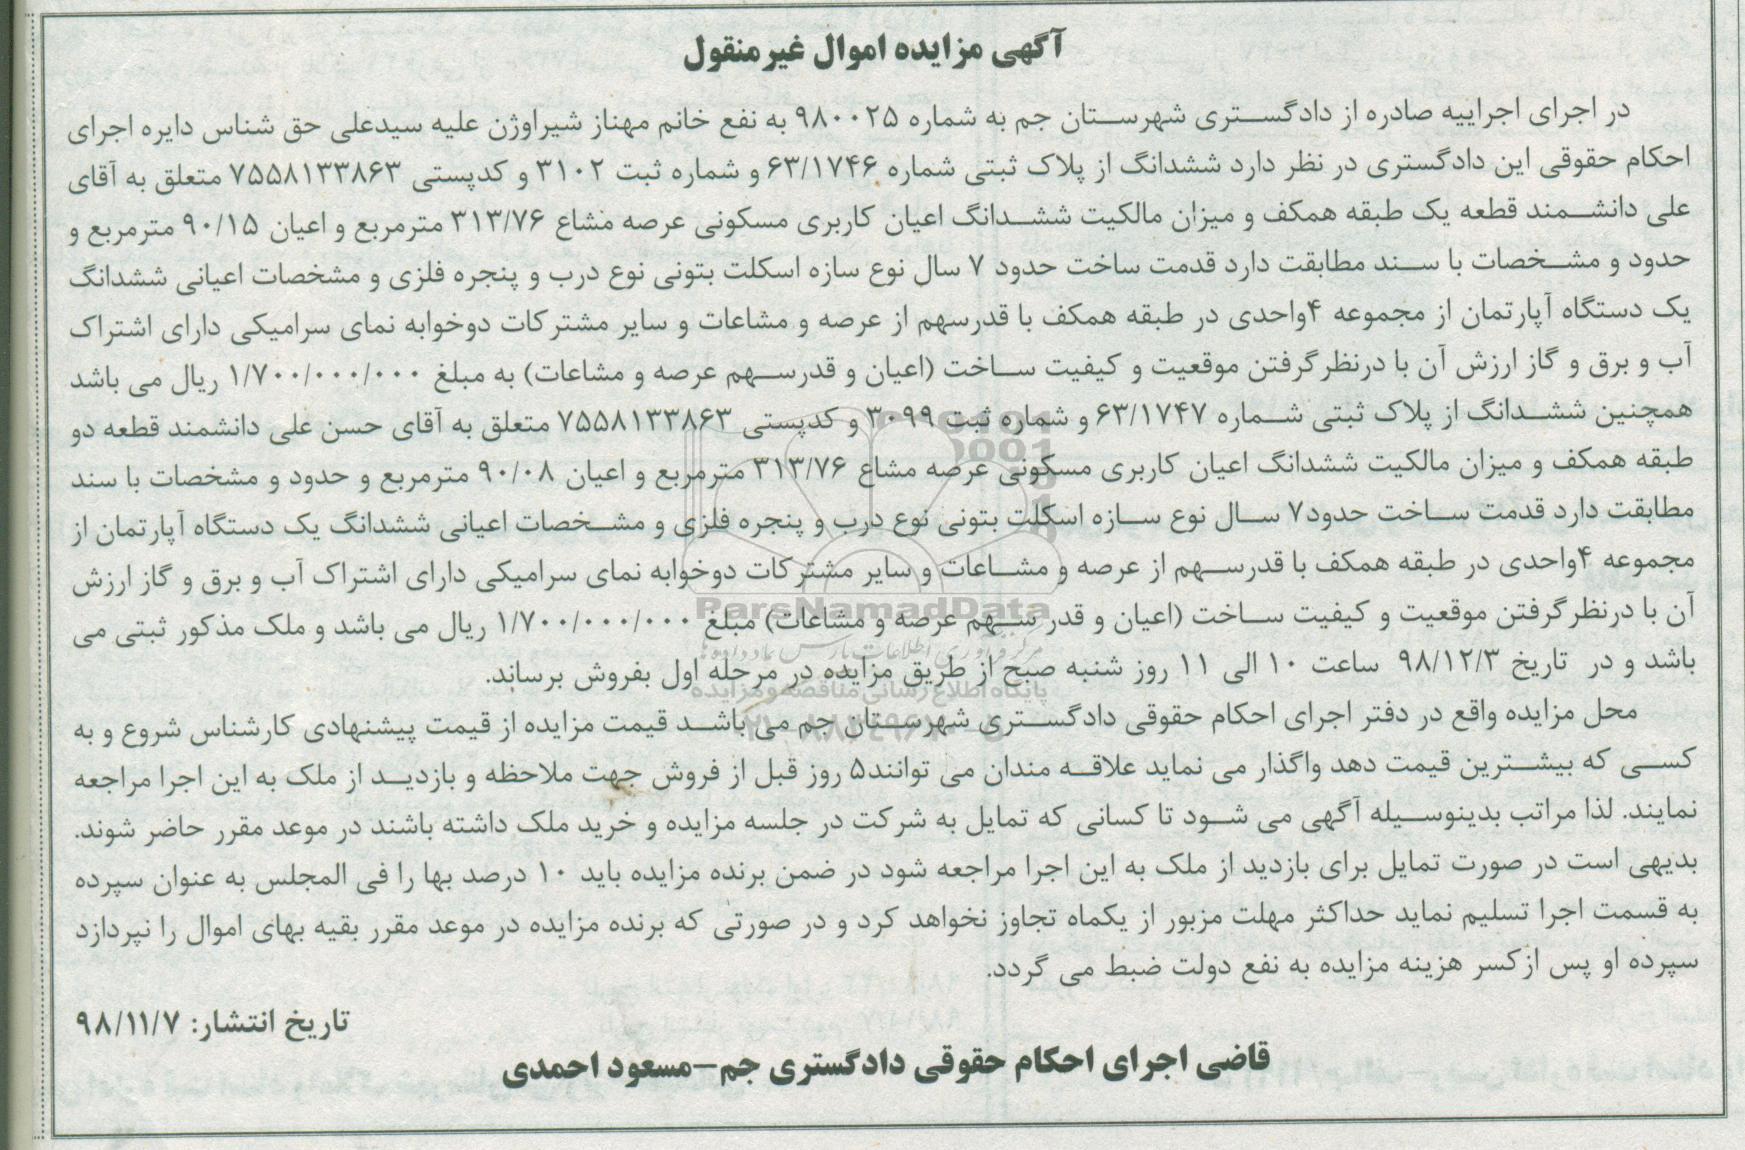 آگهی مزایده اموال غیرمنقول
در اجرای اجراییه صادره از دادگستری شهرستان جم به شماره ۹۸۰۰۲۵ به نفع خانم مهناز شیراوژن علیه سیدعلی حق شناس دایره اجرای
احکام حقوقی این دادگستری در نظر دارد ششدانگ از پلاک ثبتی شماره ۶۳/۱۷۴۶ و شماره ثبت ۳۱۰۲ و کدپستی ۷۵۵۸۱۳۳۸۶۳ متعلق به آقای
علی دانشمند قطعه یک طبقه همکف و میزان مالکیت ششدانگ اعیان کاربری مسکونی عرصه مشاع ۳۱۳/۷۶ مترمربع و اعیان ۹۰/۱۵ مترمربع و
حدود و مشخصات با سند مطابقت دارد قدمت ساخت حدود ۷ سال نوع سازه اسکلت بتونی نوع درب و پنجره فلزی و مشخصات اعیانی ششدانگ
یک دستگاه آپارتمان از مجموعه ۴واحدی در طبقه همکف با قدرسهم از عرصه و مشاعات و سایر مشترکات دوخوابه نمای سرامیکی دارای اشتراک
آب و برق و گاز ارزش آن با درنظرگرفتن موقعیت و کیفیت ساخت (اعیان و قدرسهم عرصه و مشاعات) به مبلغ ۱/۷۰۰/۰۰۰/۰۰۰ ریال می باشد
همچنین ششدانگ از پلاک ثبتی شماره ۶۳/۱۷۴۷ و شماره ثبت ۳۰۹۹ و کدپستی ۷۵۵۸۱۳۳۸۶۳ متعلق به آقای حسن علی دانشمند قطعه دو
طبقه همکف و میزان مالکیت ششدانگ اعیان کاربری مسکونی عرصه مشاع ۳۱۳/۷۶ مترمربع و اعیان ۹۰/۰۸ مترمربع و حدود و مشخصات با سند
مطابقت دارد قدمت ساخت حدود۷ سال نوع سازه اسکلت بتونی نوع درب و پنجره فلزی و مشخصات اعیانی ششدانگ یک دستگاه آپارتمان از
مجموعه ۴واحدی در طبقه همکف با قدرسهم از عرصه و مشاعات و سایر مشترکات دوخوابه نمای سرامیکی دارای اشتراک آب و برق و گاز ارزش
آن با درنظرگرفتن موقعیت و کیفیت ساخت (اعیان و قدر سهم عرصه و مشاعات) مبلغ ۱/۷۰۰/۰۰۰/۰۰۰ ریال می باشد و ملک مذکور ثبتی می
باشد و در تاریخ ۹۸/۱۲/۳ ساعت ۱۰ الی ۱۱ روز شنبه صبح از طریق مزایده در مرحله اول بفروش برساند.
محل مزایده واقع در دفتر اجرای احکام حقوقی دادگستری شهرستان جم می باشد قیمت مزایده از قیمت پیشنهادی کارشناس شروع و به
کسی که بیشترین قیمت دهد واگذار می نماید علاقه مندان می توانند۵ روز قبل از فروش جهت ملاحظه و بازدید از ملک به این اجرا مراجعه
نمایند. لذا مراتب بدینوسیله آگهی می شود تا کسانی که تمایل به شرکت در جلسه مزایده و خرید ملک داشته باشند در موعد مقرر حاضر شوند.
بدیهی است در صورت تمایل برای بازدید از ملک به این اجرا مراجعه شود در ضمن برنده مزایده باید ۱۰ درصد بها را فی المجلس به عنوان سپرده
به قسمت اجرا تسلیم نماید حداکثر مهلت مزبور از یکماه تجاوز نخواهد کرد و در صورتی که برنده مزایده در موعد مقرر بقیه بهای اموال را نپردازد
سپرده او پس ازکسر هزینه مزایده به نفع دولت ضبط می گردد.
تاریخ انتشار: ۹۸/۱۱/۷
قاضی اجرای احکام حقوقی دادگستری جم-مسعود احمدی
ParsNamadData
مرکز فرآوری اطلاعات پارس نماد داده ها
پایگاه اطلاع رسانی مناقصه و مزایده